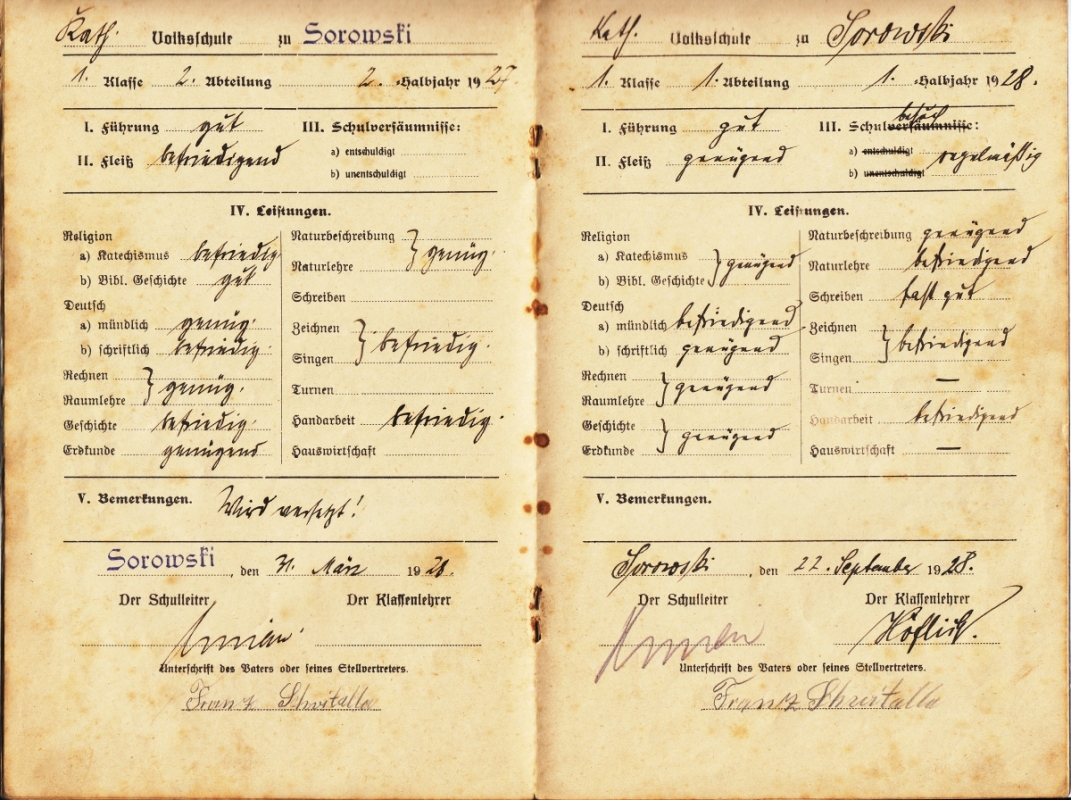 Kath. Volksschule zu Sorowski
1. Klasse 2. Abteilung 2. Halbjahr 1927.
I. Führung gut
II. Fleiß befriedigend
III. Schulversäumnisse:
a) entschuldigt
b) unentschuldigt
IV. Leistungen.
Religion
a) Katechismus befriedig.
b) Bibl. Geschichte gut
Deutsch
a) mündlich genüg.
b) schriftlich befriedig.
Rechnen
Raumlehre } genüg.
Geschichte befriedig.
Erdkunde genügend
Naturbeschreibung
Naturlehre } genüg.
Schreiben
Zeichnen
Singen } befriedig.
Turnen
Handarbeit befriedig.
Hauswirtschaft
V. Bemerkungen. Wird versetzt!
Sorowski, den 31. März 1928.
Der Schulleiter Der Klassenlehrer
Unterschrift des Vaters oder seines Stellvertreters.
Franz
Kath. Volksschule zu Sorowski
1. Klasse 1. Abteilung 1. Halbjahr 1928.
I. Führung gut
II. Fleiß genügend
III. Schulversäumnisse: besuch
a) entschuldigt regelmäßig
b) unentschuldigt
IV. Leistungen.
Religion
a) Katechismus
b) Bibl. Geschichte } genügend
Deutsch
a) mündlich befriedigend
b) schriftlich genügend
Rechnen
Raumlehre } genügend
Geschichte
Erdkunde } genügend
Naturbeschreibung genügend
Naturlehre befriedigend
Schreiben fast gut
Zeichnen
Singen } befriedigend
Turnen —
Handarbeit befriedigend
Hauswirtschaft —
V. Bemerkungen.
Sorowski, den 22. September 1928.
Der Schulleiter Der Klassenlehrer
Höflich.
Unterschrift des Vaters oder seines Stellvertreters.
Franz